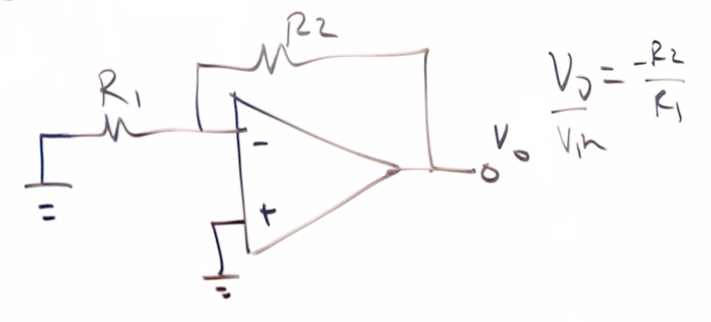 R2
R1
-
+
Vo
Vo/Vin = -R2/R1